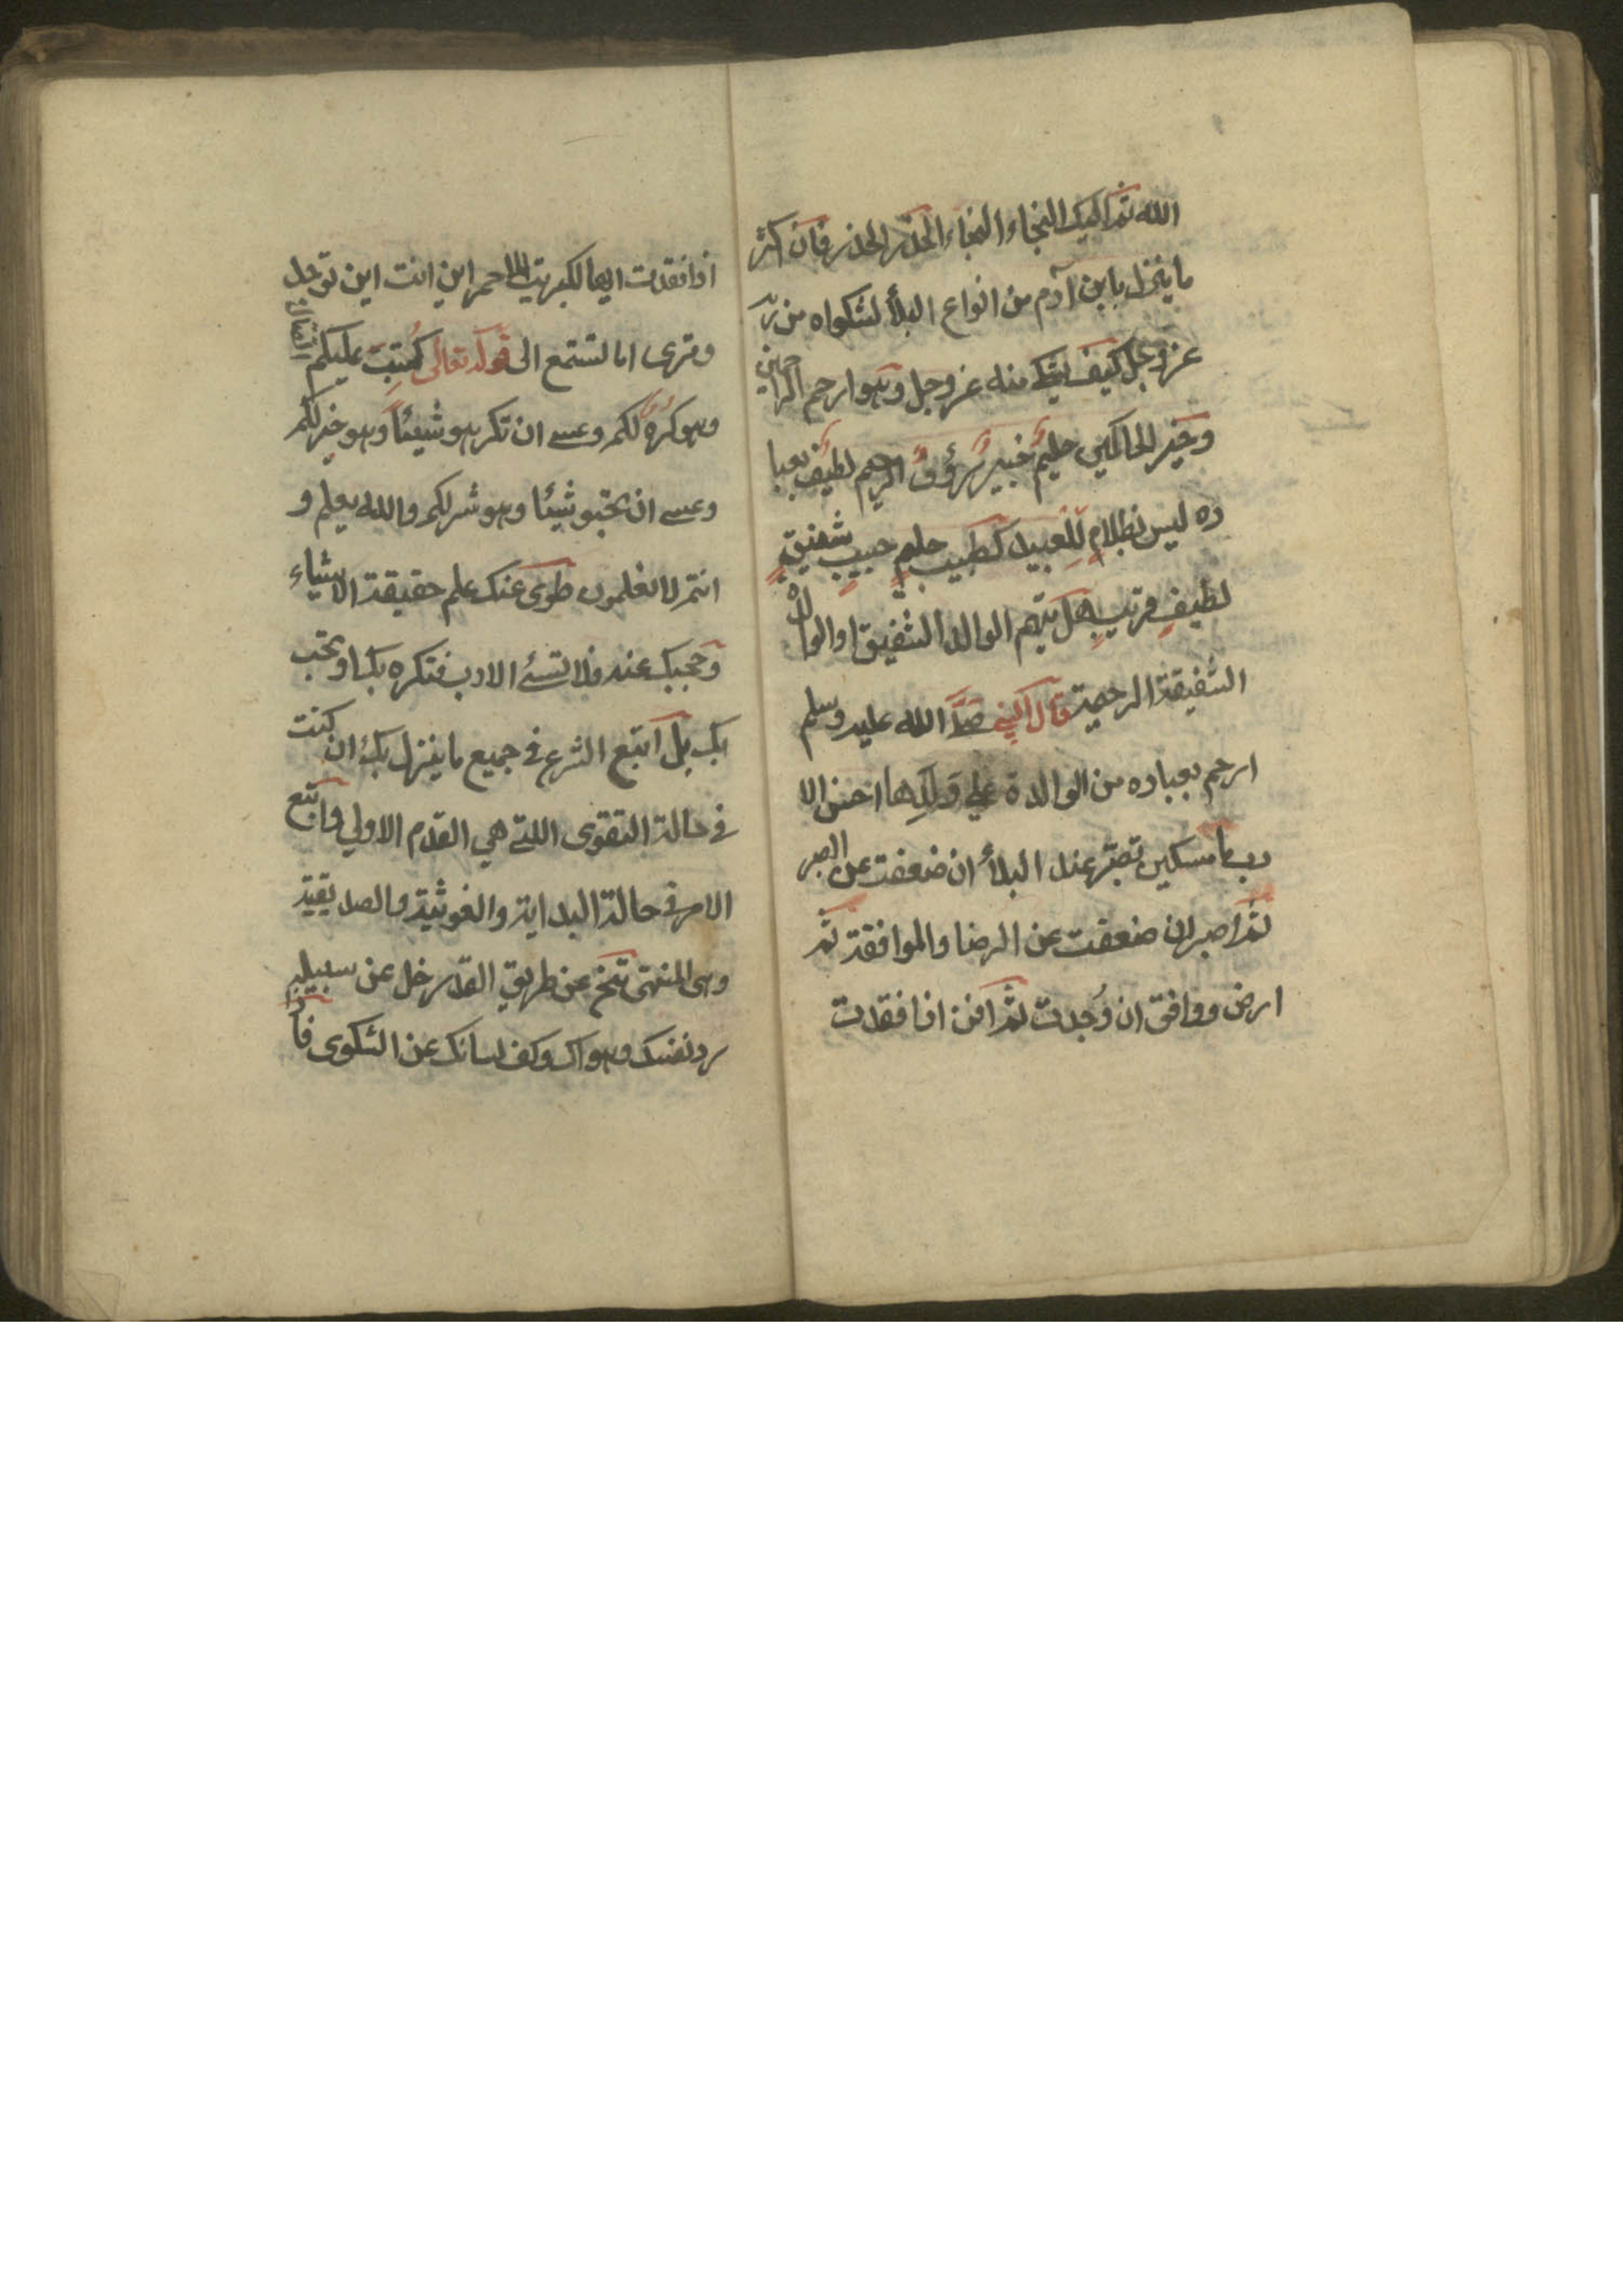 الله ثم اليك النجاء النجاء الحذر الحذر فان اكثر
ما ينزل بابن آدم من انواع البلأ لشكواه من ربه
عز وجل كيف يشكى منه عز وجل وهو ارحم الراحمين
وخير الحاكمين حليم خبير رؤف الرحيم لطيف بعبا
ده ليس بظلام للعبيد كطبيب حليم حبيب شفيق
لطيف قريب هل يتهم الوالد الشفيق او الوالدة
الشفيقة الرحيمة قال النبي صلى الله عليه وسلم
ارحم بعباده من الوالدة على ولدها احسن الا
دب يا مسكين تصبر عند البلأ ان ضعفت عن الصبر
ثم اصبر ان ضعفت عن الرضا والموافقة ثم
ارض ووافق ان وجدت ثم افن اذا فقدت
اذا فقدت ايها الكبريت الاحمر اين انت اين توجد
وترى اما تستمع الى قوله تعالى كتب عليكم القتال
وهو كره لكم وعسى ان تكرهو شيئا وهو خير لكم
وعسى ان تحبو شيئا وهو شر لكم والله يعلم و
انتم لا تعلمون طوى عنك علم حقيقة الاشياء
وحجبك عنه فلا تسئ الادب فتكره بك او تحب
بك بل اتبع الشرع في جميع ما ينزل بك ان كنت
في حالة التقوى اللتي هي القدم الاولي واتبع
الامر في حالة البداية والغوثية والصديقية
وهى المنتهى تنح عن طريق القدر خل عن سبيله
رد نفسك وهواك وكف لسانك عن الشكوى فاذا